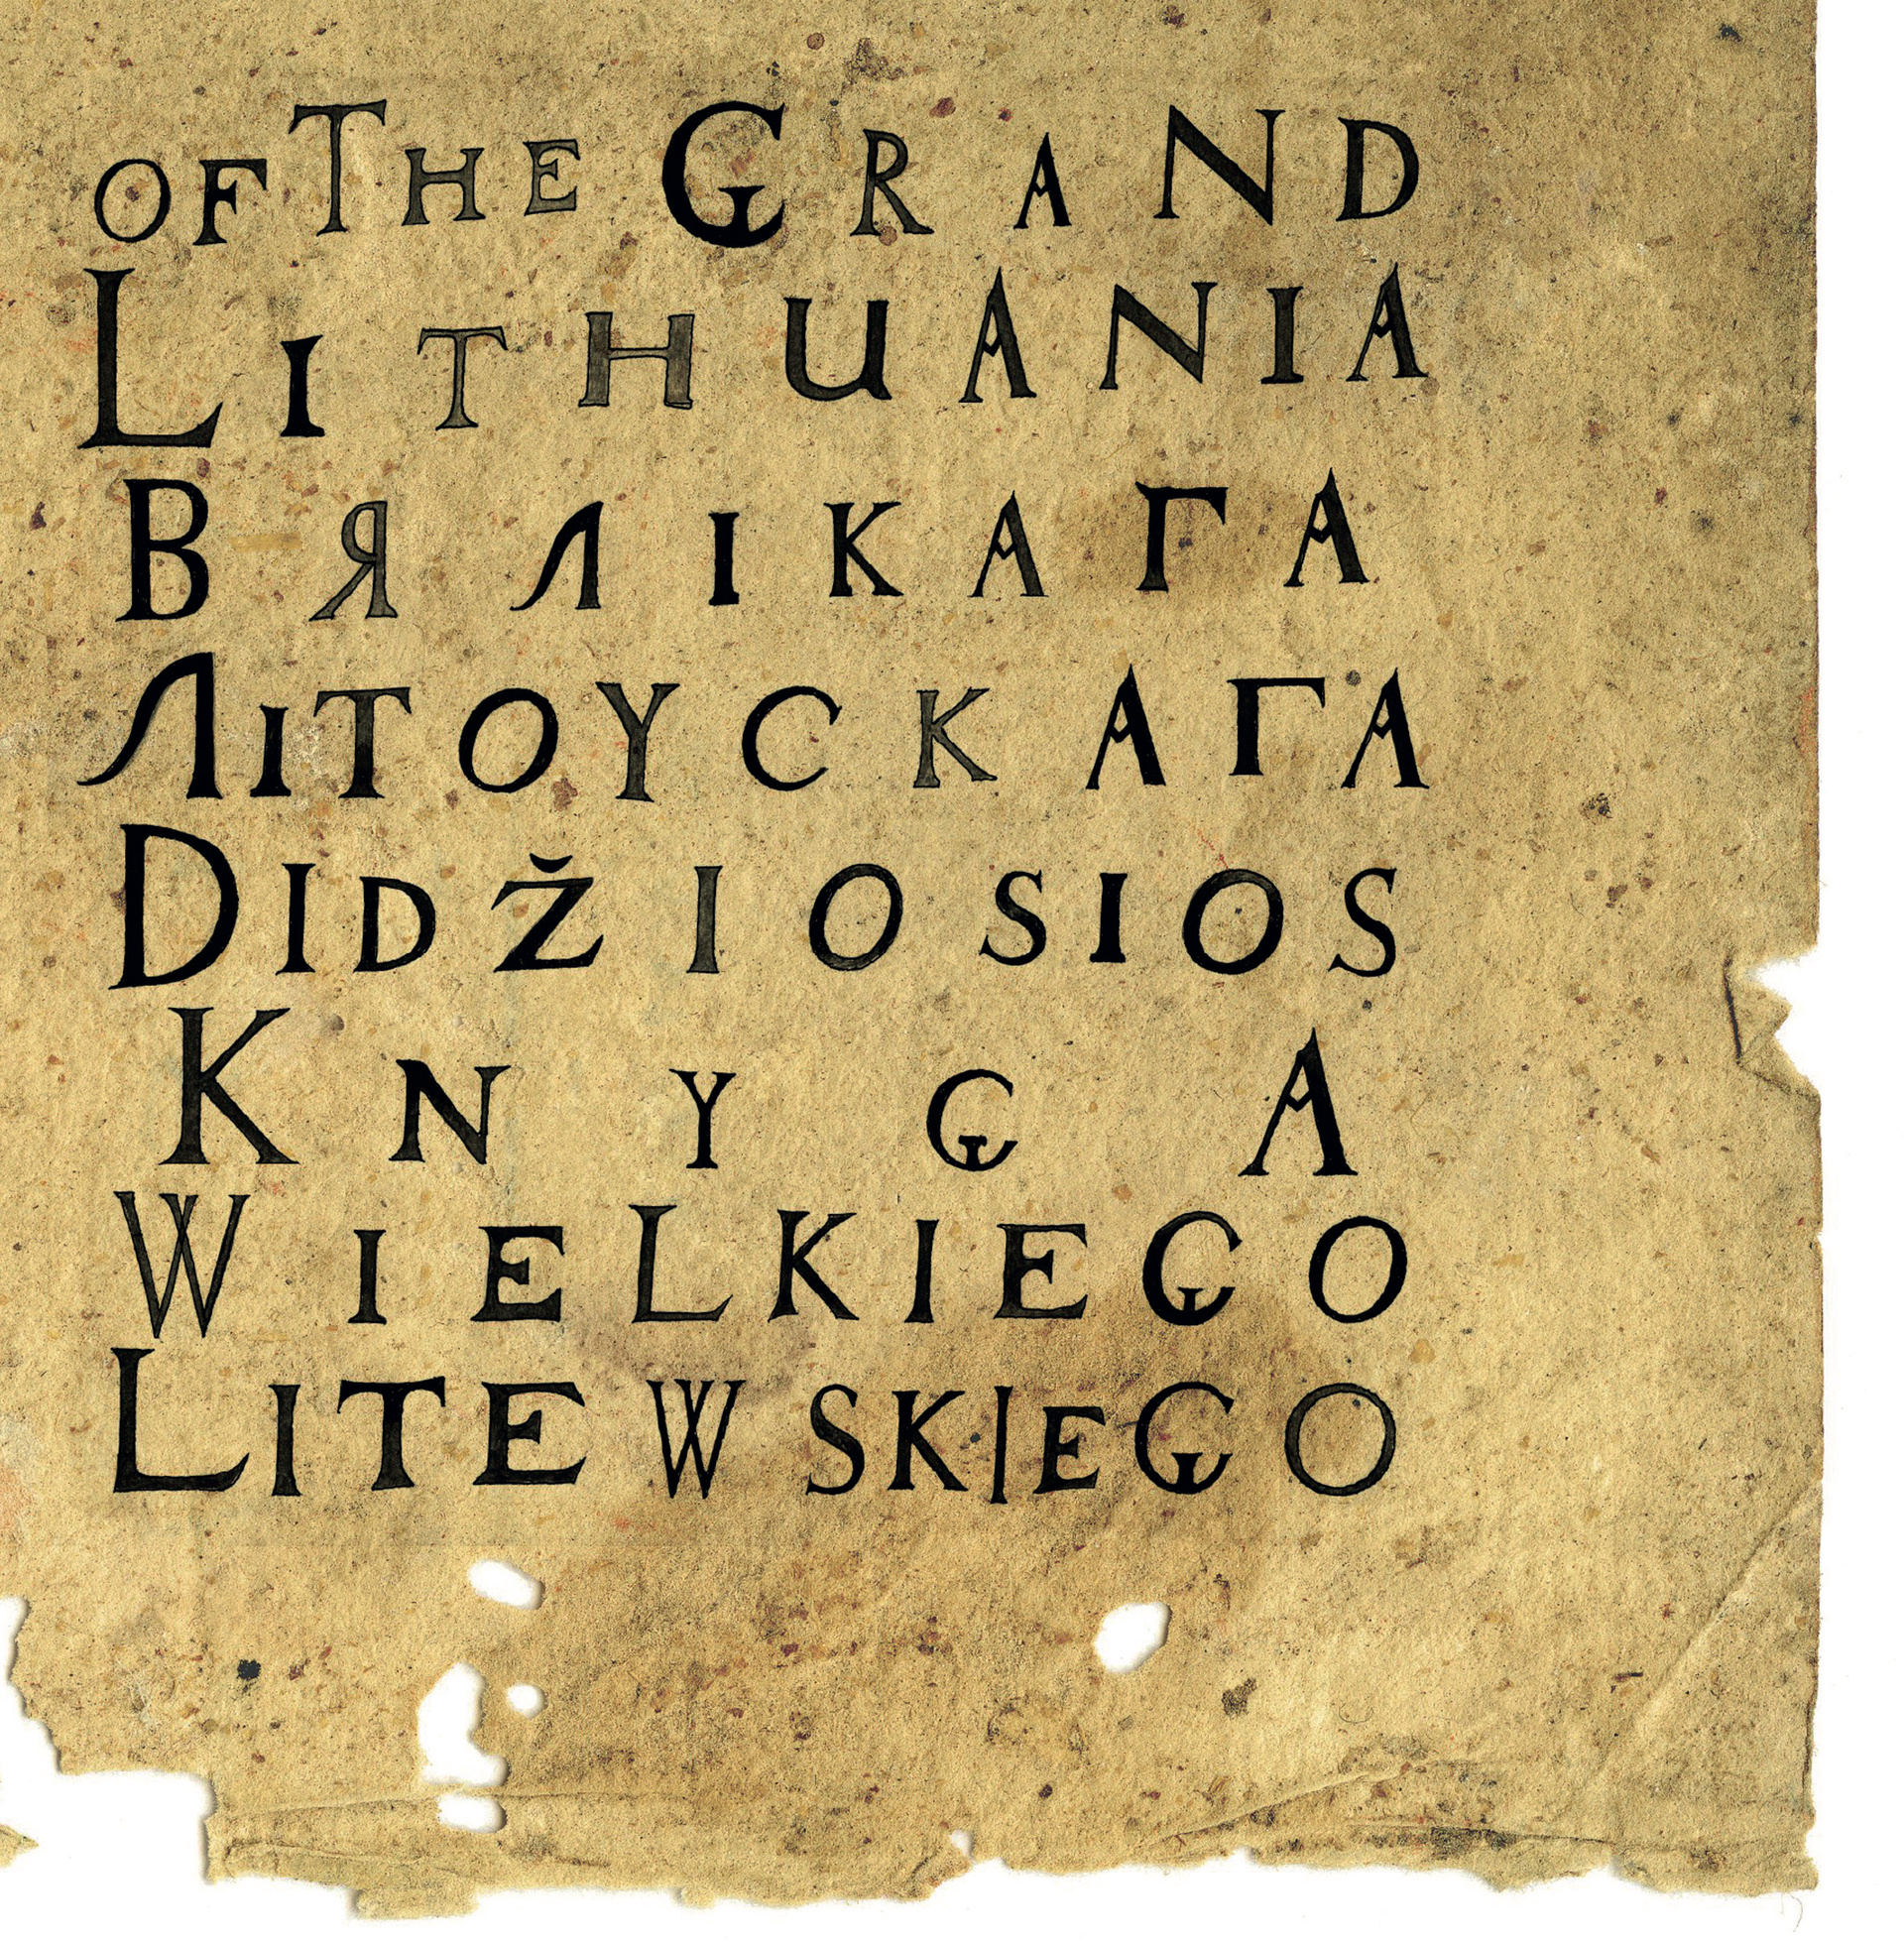 OF THE GRAND
LITHUANIA
ВЯЛІКАГА
ЛІТОУСКАГА
DIDŽIOSIOS
KNYGA
WIELKIEGO
LITEWSKIEGO